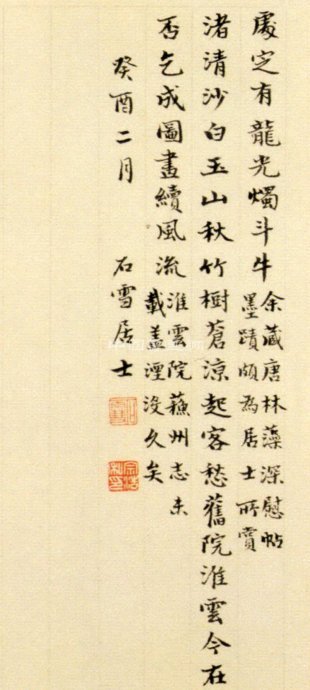 處定有龍光燭斗牛
余藏唐林藻深慰帖
墨蹟頗為居士所賞
渚清沙白玉山秋竹樹蒼涼起客愁舊院淮雲今在
否乞成圖畫續風流
淮雲院蘓州志未
載蓋湮沒久矣
癸酉二月 石雪居士